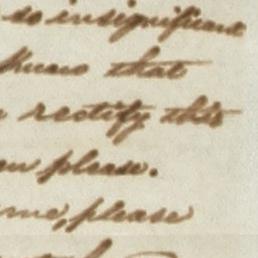 so insignificant
know that
rectify this
please.
me, please